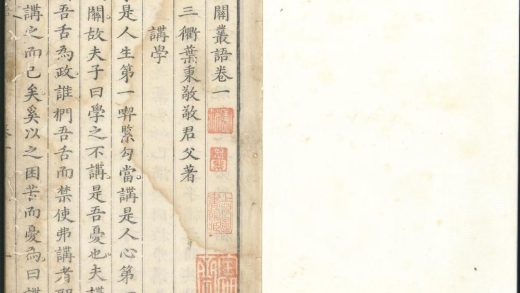 關叢語卷一
三衢葉秉敬敬君父著
講學
是人生第一喫緊勾當講是人心第一
關故夫子曰學之不講是吾憂也夫講
吾舌為政誰捫吾舌而禁使弗講者
講之而已矣奚以之困苦而憂為曰講